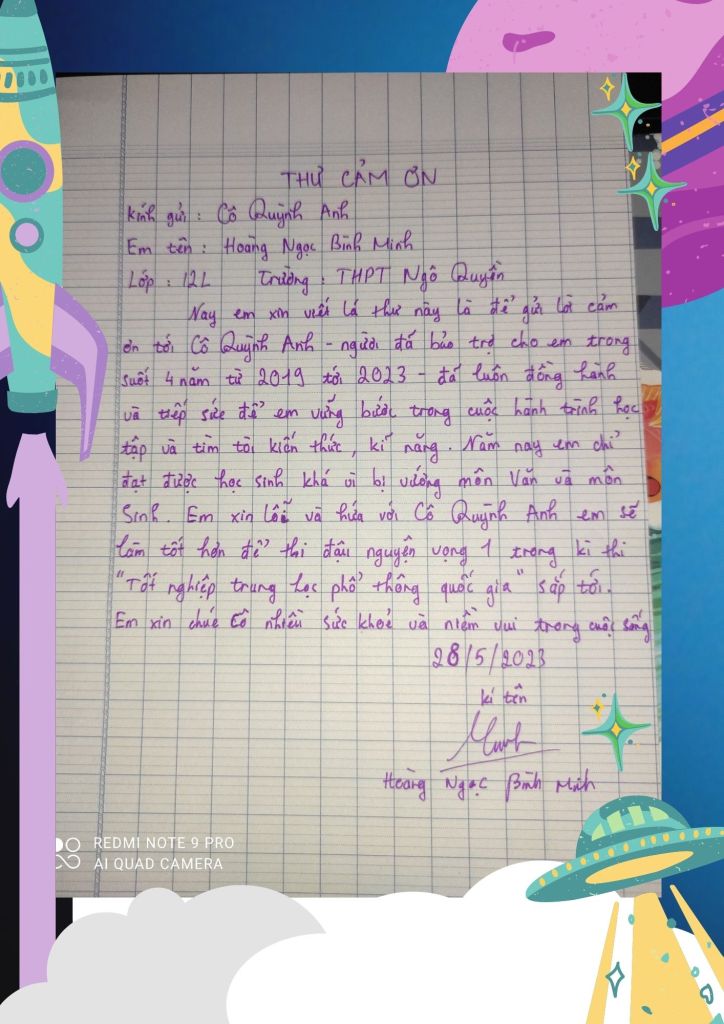 THƯ CẢM ƠN
Kính gửi : Cô Quỳnh Anh
Em tên : Hoàng Ngọc Bình Minh
Lớp : 12L Trường : THPT Ngô Quyền
Nay em xin viết lá thư này là để gửi lời cảm
ơn tới Cô Quỳnh Anh - người đã bảo trợ cho em trong
suốt 4 năm từ 2019 tới 2023 - đã luôn đồng hành
và tiếp sức để em vững bước trong cuộc hành trình học
tập và tìm tòi kiến thức, kĩ năng. Năm nay em chỉ
đạt được học sinh khá vì bị vướng môn Văn và môn
Sinh. Em xin lỗi và hứa với Cô Quỳnh Anh em sẽ
làm tốt hơn để thi đậu nguyện vọng 1 trong kì thi
"Tốt nghiệp trung học phổ thông quốc gia" sắp tới.
Em xin chúc Cô nhiều sức khoẻ và niềm vui trong cuộc sống
28/5/2023
kí tên
Minh
Hoàng Ngọc Bình Minh
REDMI NOTE 9 PRO
AI QUAD CAMERA